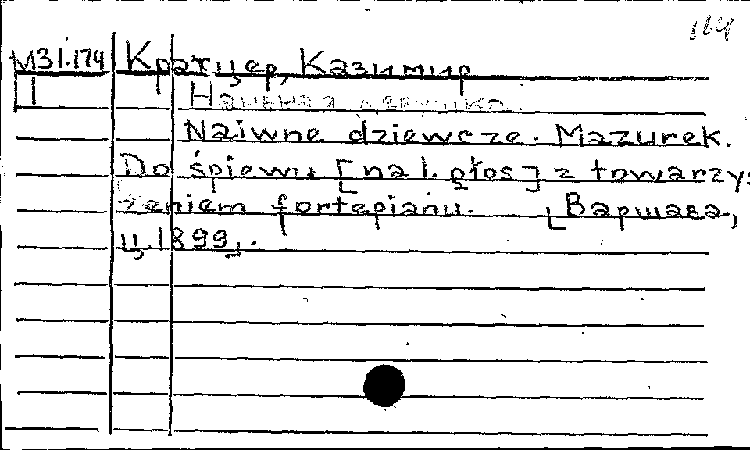 164
М31.174 Кратцер, Казимир
Наивная девушка.
Naiwne dziewcze. Mazurek.
Do śpiewu [na 1. głos] z towarzys
zeniem fortepianu. [Варшава,
ц.1899].